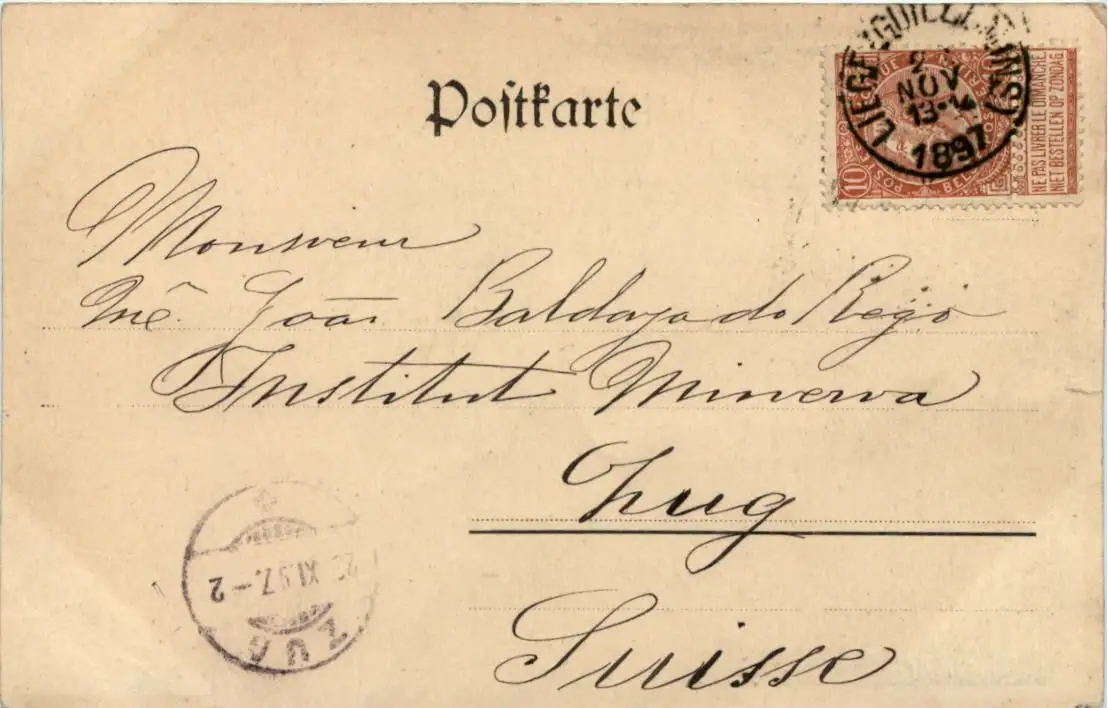 Postkarte
LIEGE (GUILLEMINS)
NOV
13-14
1897
10
NE PAS LIVRER LE DIMANCHE
NIET BESTELLEN OP ZONDAG
Monsieur
João Baldaya do Rêgo
Institut Minerva
Zug
Suisse
XI.97.-2
ZUG